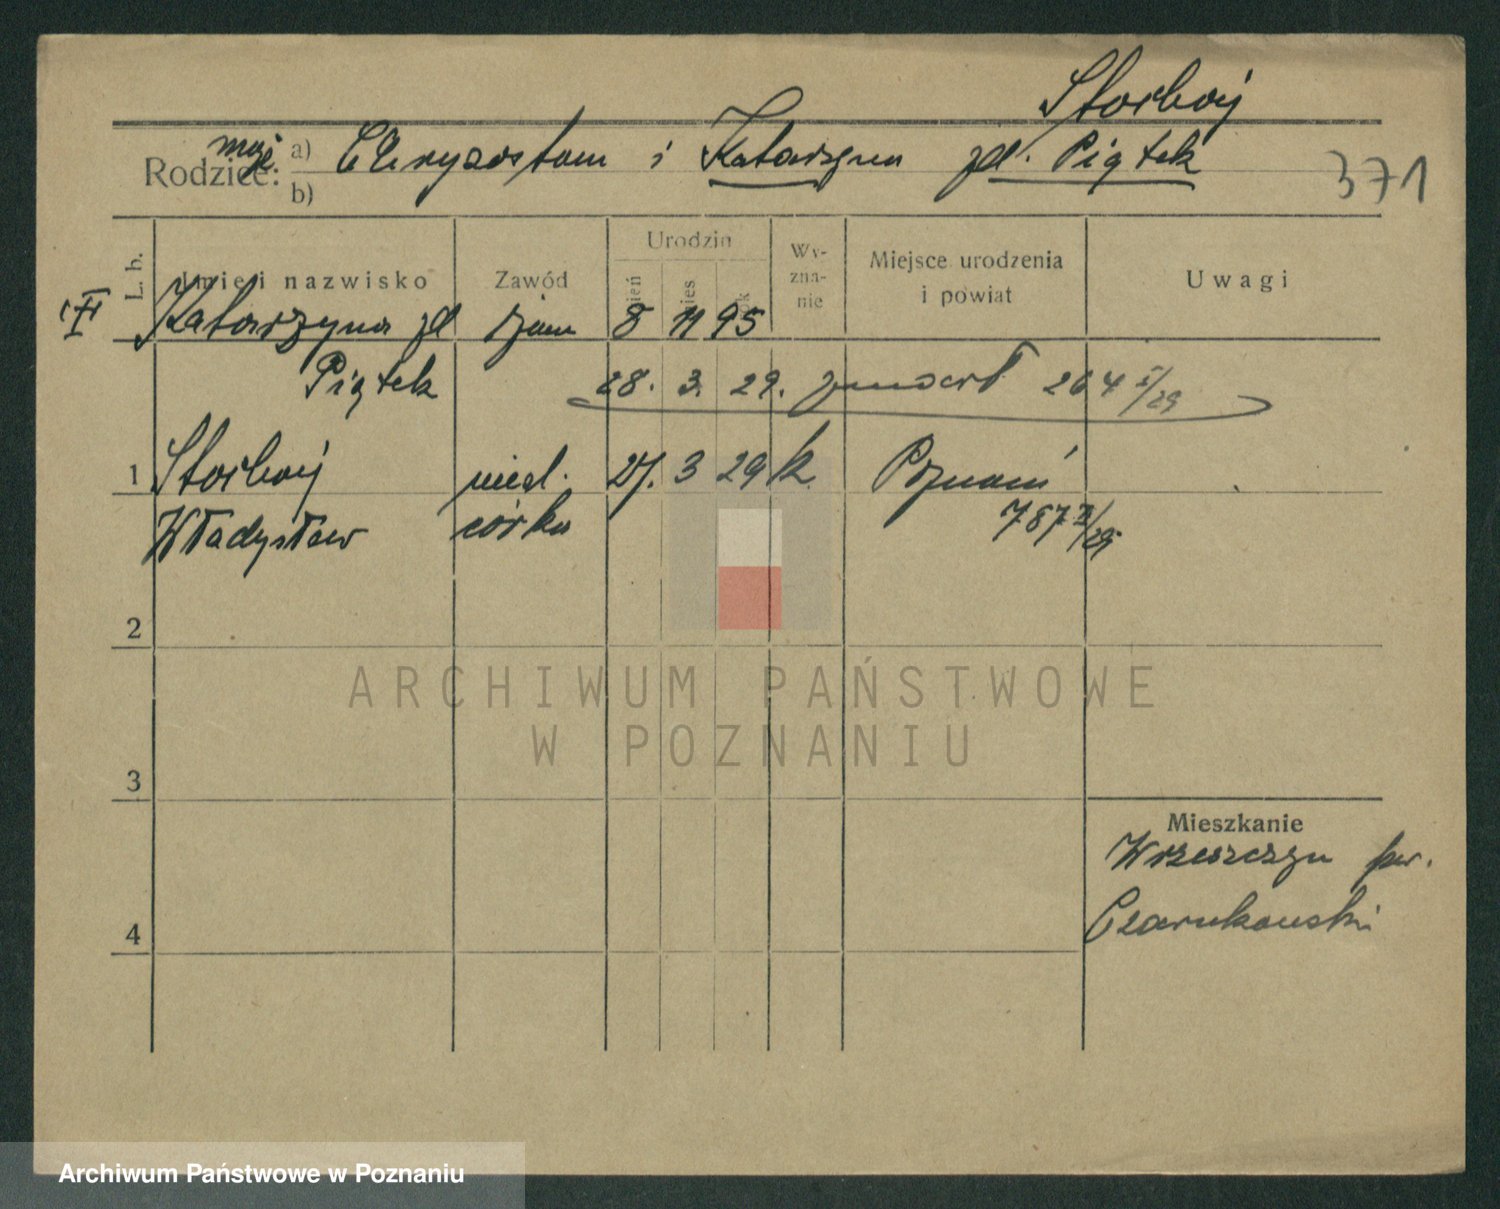 Storboij
moje
Rodzice: a) Chryzostom i Katarzyna zd. Piątek
b)
371
L. b. Imię i nazwisko Zawód Urodzin dzień mies rok Wyznanie Miejsce urodzenia i powiat Uwagi
Katarzyna zd 8 11 95
Piątek 28. 3. 29. 264 I/29
1 27. 3 29 k. Poznań
Władysław córka 787 II/29
2
3
4
Mieszkanie
Wrzeszczyn pow.
Czarnkowski
ARCHIWUM PAŃSTWOWE
W POZNANIU
Archiwum Państwowe w Poznaniu